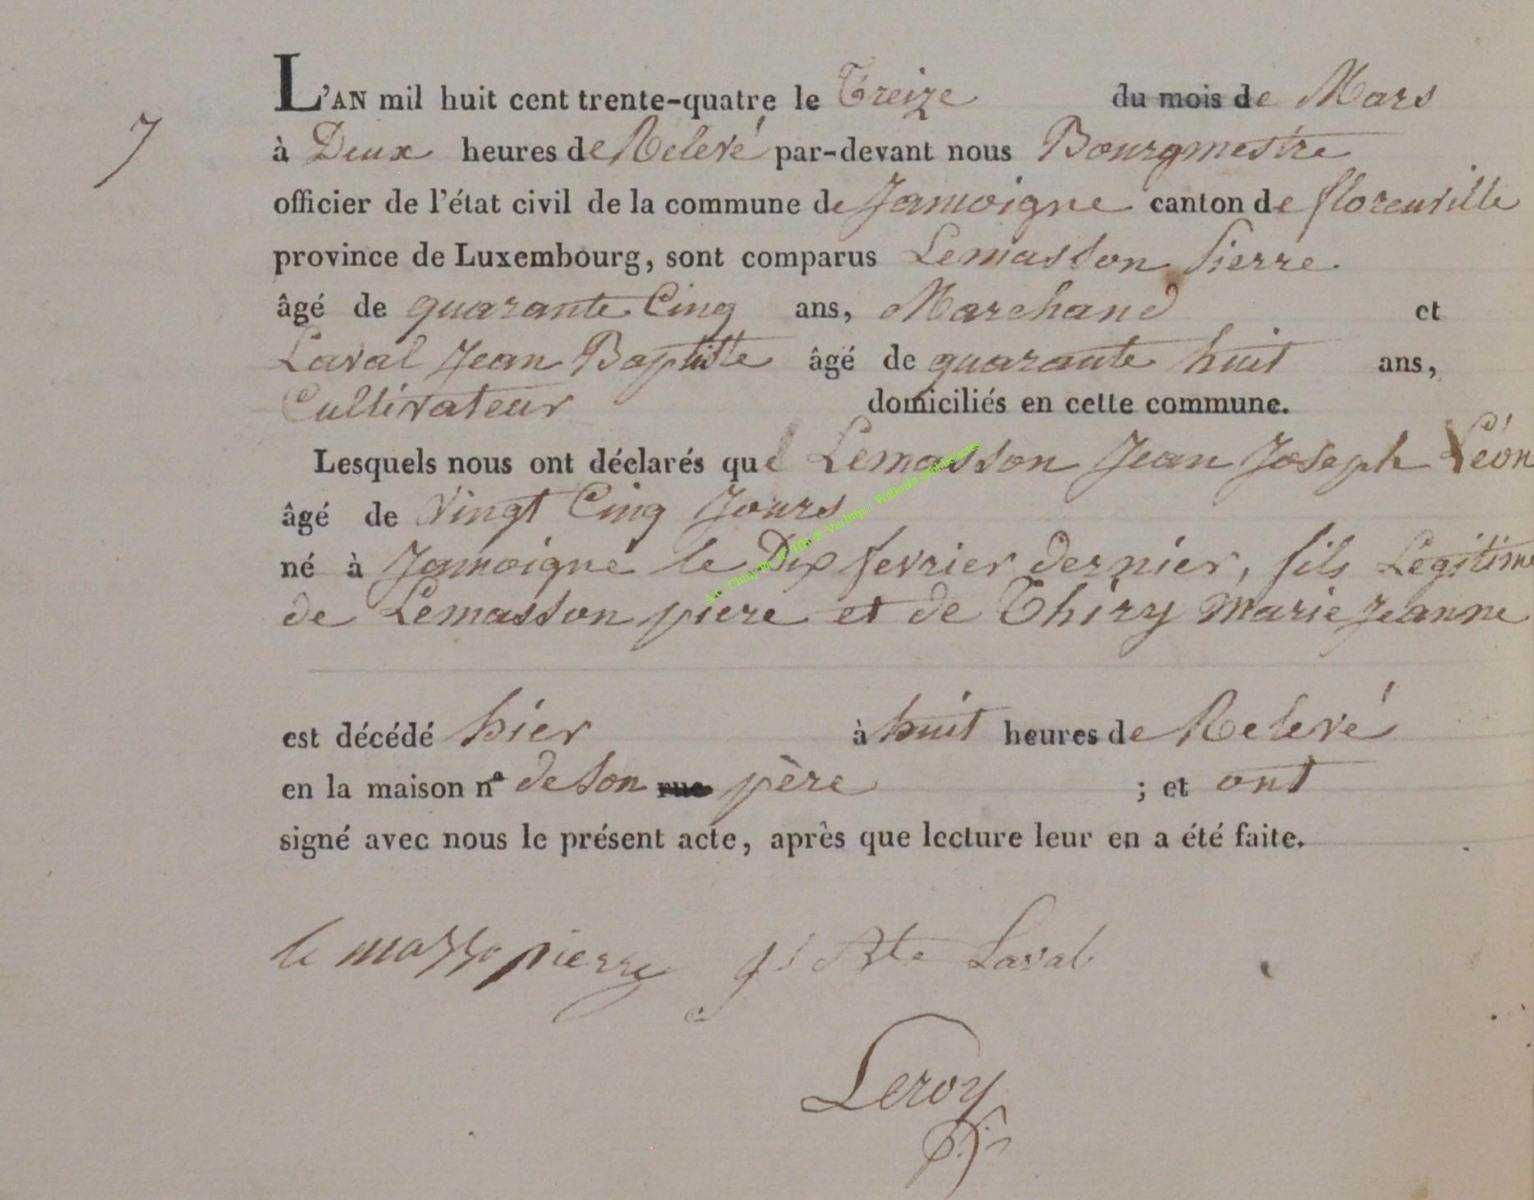 L'AN mil huit cent trente-quatre le Treize du mois de Mars
7
à Deux heures de Relevé par-devant nous Bourgmestre
officier de l'état civil de la commune de Jamoigne canton de florenville
province de Luxembourg, sont comparus Lemasson Pierre
âgé de quarante Cinq ans, Marchand et
Laval Jean Baptiste âgé de quarante huit ans,
Cultivateur domiciliés en cette commune.
Lesquels nous ont déclarés que Lemasson Jean Joseph Léon
âgé de Vingt Cinq Jours
né à Jamoigne le Dix fevrier dernier, fils Legitim
de Lemasson piere et de Thiry Marie Jeanne
est décédé hier à huit heures de Relevé
en la maison n° de son rue père ; et ont
signé avec nous le présent acte, après que lecture leur en a été faite.
le masso pierre J Bte Laval
Leroy